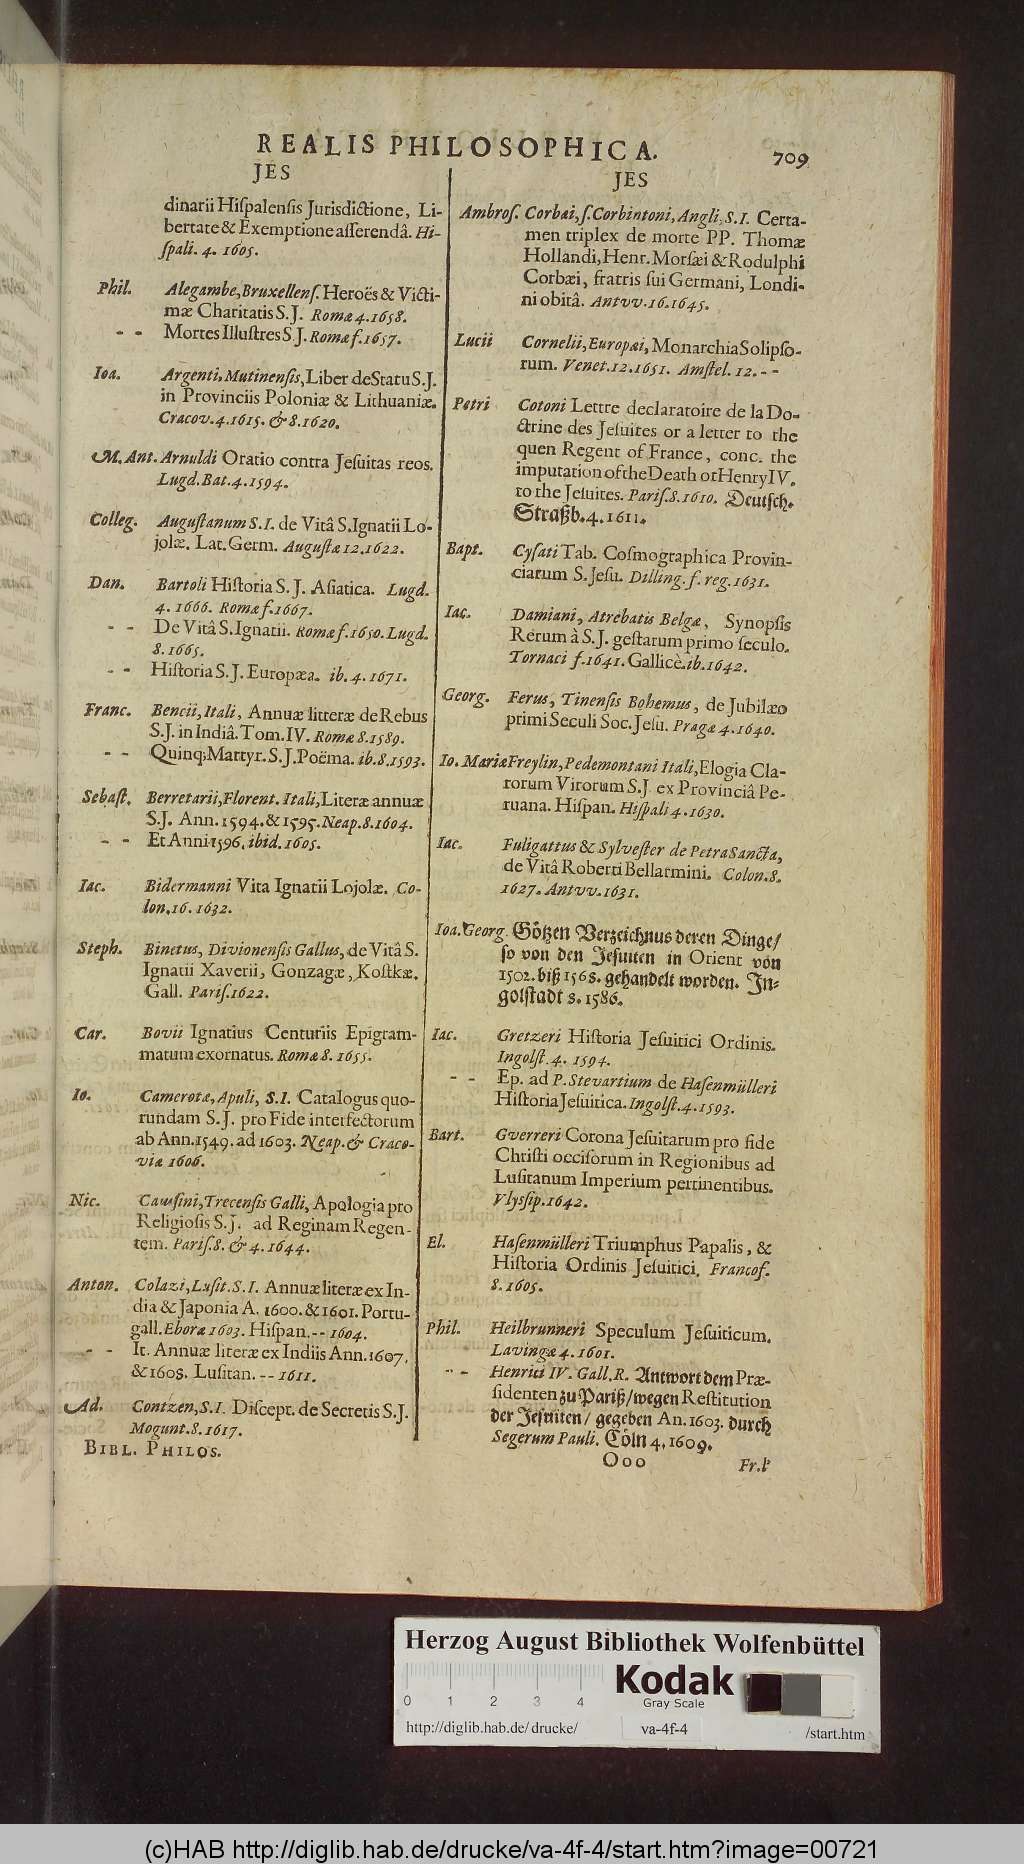 REALIS PHILOSOPHICA.
709
JES
dinarii Hiſpalenſis Jurisdictione, Li-
bertate & Exemptione aſſerendâ. Hi-
ſpali. 4. 1605.
Phil. Alegambe, Bruxellenſ. Heroës & Victi-
mæ Charitatis S. J. Romæ 4. 1658.
- - Mortes Illuſtres S J. Romæ f. 1657.
Ioa. Argenti, Mutinenſis, Liber de Statu S. J.
in Provinciis Poloniæ & Lithuaniæ.
Cracov. 4. 1615. & 8. 1620.
M. Ant. Arnuldi Oratio contra Jeſuitas reos.
Lugd. Bat. 4. 1594.
Colleg. Auguſtanum S. I. de Vitâ S. Ignatii Lo-
jolæ. Lat. Germ. Auguſtæ 12. 1622.
Dan. Bartoli Hiſtoria S. J. Aſiatica. Lugd.
4. 1666. Romæ f. 1667.
- - De Vitâ S. Ignatii. Romæ f. 1650. Lugd.
8. 1665.
- - Hiſtoria S. J. Europæa. ib. 4. 1671.
Franc. Bencii, Itali, Annuæ litteræ de Rebus
S. J. in Indiâ. Tom. IV. Romæ 8. 1589.
- - Quinq; Martyr. S. J. Poëma. ib. 8. 1593.
Sebaſt. Berretarii, Florent. Itali, Literæ annuæ
S. J. Ann. 1594. & 1595. Neap. 8. 1604.
- - Et Anni 1596. ibid. 1605.
Iac. Bidermanni Vita Ignatii Lojolæ. Co-
lon. 16. 1632.
Steph. Binetus, Divionenſis Gallus, de Vitâ S.
Ignatii Xaverii, Gonzagæ, Koſtkæ.
Gall. Pariſ. 1622.
Car. Bovii Ignatius Centuriis Epigram-
matum exornatus. Romæ 8. 1655.
Io. Camerotæ, Apuli, S. I. Catalogus quo-
rundam S. J. pro Fide interfectorum
ab Ann. 1549. ad 1603. Neap. & Craco-
viæ 1606.
Nic. Cauſini, Trecenſis Galli, Apologia pro
Religioſis S. J. ad Reginam Regen-
tem. Pariſ. 8. & 4. 1644.
Anton. Colazi, Luſit. S. I. Annuæ literæ ex In-
dia & Japonia A. 1600. & 1601. Portu-
gall. Eboræ 1603. Hiſpan. - - 1604.
- - It. Annuæ literæ ex Indiis Ann. 1607.
& 1608. Luſitan. - - 1611.
Ad. Contzen, S. I. Diſcept. de Secretis S. J.
Mogunt. 8. 1617.
BIBL. PHILOS.
JES
Ambroſ. Corbæi, ſ. Corbintoni, Angli, S. I. Certa-
men triplex de morte PP. Thomæ
Hollandi, Henr. Morſæi & Rodulphi
Corbæi, fratris ſui Germani, Londi-
ni obitâ. Antvv. 16. 1645.
Lucii Cornelii, Europæi, Monarchia Solipſo-
rum. Venet. 12. 1651. Amſtel. 12. - -
Petri Cotoni Lettre declaratoire de la Do-
ctrine des Jeſuites or a letter to the
quen Regent of France, conc. the
imputation of the Death of Henry IV.
to the Jeſuites. Pariſ. 8. 1610. Deutſch.
Straßb. 4. 1611.
Bapt. Cyſati Tab. Coſmographica Provin-
ciarum S. Jeſu. Dilling. f. reg. 1631.
Iac. Damiani, Atrebatis Belgæ, Synopſis
Rerum à S. J. geſtarum primo ſeculo.
Tornaci f. 1641. Gallicè. ib. 1642.
Georg. Ferus, Tinenſis Bohemus, de Jubilæo
primi Seculi Soc. Jeſu. Pragæ 4. 1640.
Io. Mariæ Freylin, Pedemontani Itali, Elogia Cla-
rorum Virorum S. J ex Provinciâ Pe-
ruana. Hiſpan. Hiſpali 4. 1630.
Iac. Fuligattus & Sylveſter de Petra Sancta,
de Vitâ Roberti Bellarmini. Colon. 8.
1627. Antvv. 1631.
Ioa. Georg. Götzen Verzeichnus deren Dinge/
ſo von den Jeſuiten in Orient von
1502. biß 1568. gehandelt worden. In-
golſtadt 8. 1586.
Iac. Gretzeri Hiſtoria Jeſuitici Ordinis.
Ingolſt. 4. 1594.
- - Ep. ad P. Stevartium de Haſenmülleri
Hiſtoria Jeſuitica. Ingolſt. 4. 1593.
Bart. Gverreri Corona Jeſuitarum pro fide
Chriſti occiſorum in Regionibus ad
Luſitanum Imperium pertinentibus.
Vlyſſip. 1642.
El. Haſenmülleri Triumphus Papalis, &
Hiſtoria Ordinis Jeſuitici. Francof.
8. 1605.
Phil. Heilbrunneri Speculum Jeſuiticum.
Lavingæ 4. 1601.
- - Henrici IV. Gall. R. Antwort dem Præ-
ſidenten zu Pariß/ wegen Reſtitution
der Jeſuiten/ gegeben An. 1603. durch
Segerum Pauli. Cöln 4. 1609.
Ooo
Herzog August Bibliothek Wolfenbüttel
0 1 2 3 4
Kodak
Gray Scale
http://diglib.hab.de/drucke/
va-4f-4
/start.htm
(c)HAB http://diglib.hab.de/drucke/va-4f-4/start.htm?image=00721